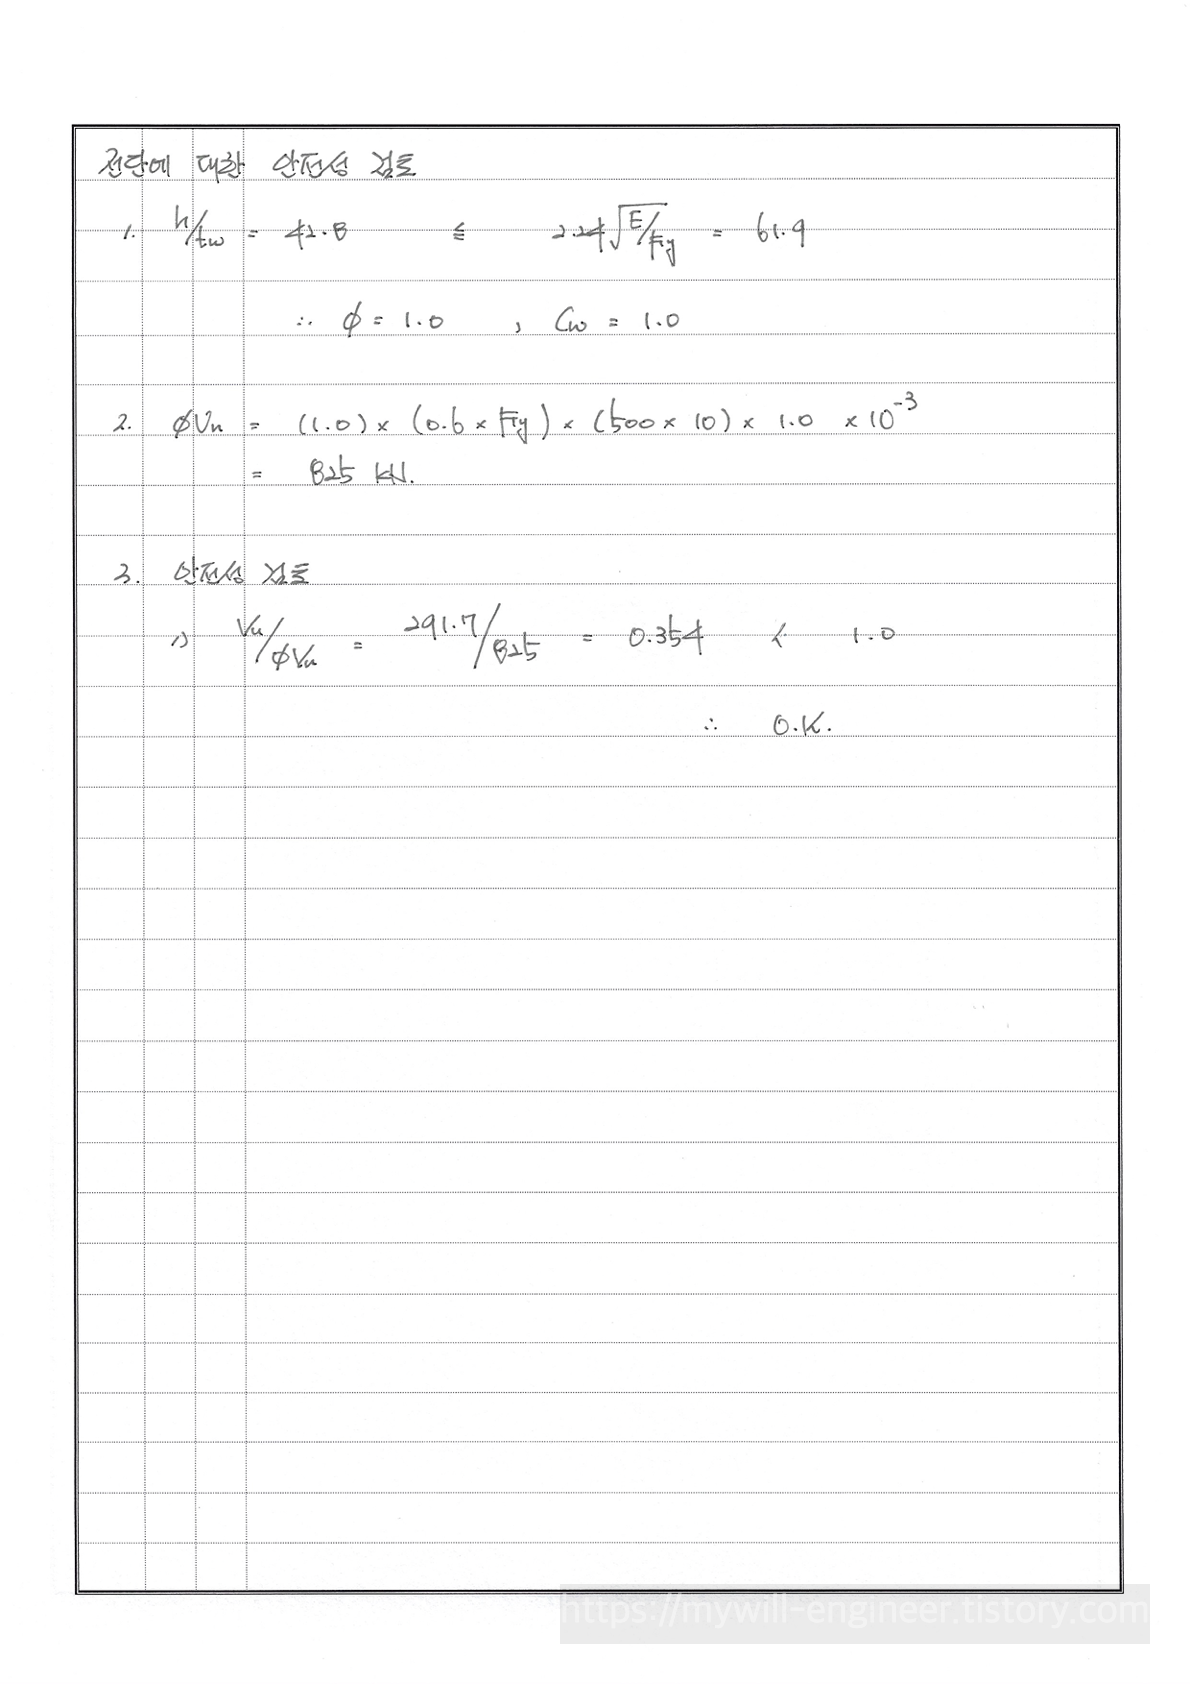 전단에 대한 안전성 검토
1. h/tw = 42.8 ≦ 2.24√E/Fy = 61.9
∴ φ = 1.0 , Cv = 1.0
2. φVn = (1.0) × (0.6 × Fy) × (500 × 10) × 1.0 × 10⁻³
= 825 kN.
3. 안전성 검토
1) Vu/φVn = 291.7/825 = 0.354 < 1.0
∴ O.K.
https://mywill-engineer.tistory.com